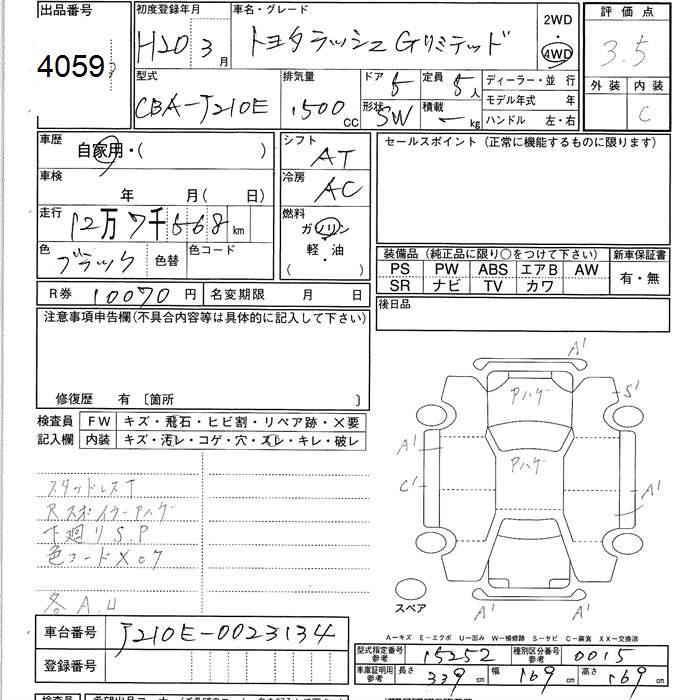 出品番号
4059
初度登録年月
H20 3 月
車名・グレード
トヨタラッシュ Gリミテッド
2WD
・
4WD
評価点
3.5
外装 内装
C
型式
CBA-J210E
排気量
1500 CC
ドア 5
定員 5 人
形状 SW
積載 ー kg
ディーラー・並 行
モデル年式 年
ハンドル 左・右
車歴
自家用・( )
車検
年 月( 日)
走行
12万7千668 km
色
ブラック
色替
色コード
シフト
AT
冷房
AC
燃料
ガソリン
軽・油
( )
セールスポイント(正常に機能するものに限ります)
装備品(純正品に限り○をつけて下さい) 新車保証書
PS PW ABS エアB AW
SR ナビ TV カワ
有・無
R券 10070 円 名変期限 月 日
後日品
注意事項申告欄(不具合内容等は具体的に記入して下さい)
修復歴 有 〔箇所 〕
検査員
記入欄
FW キズ・飛石・ヒビ割・リペア跡・×要
内装 キズ・汚レ・コゲ・穴・スレ・キレ・破レ
スタッドレスT
Rスポイラーハゲ
下廻りS.P
色コードX07
各A.U
A'
Pハゲ
S'
A'
Pハゲ
C'
A'
スペア
A'
A'
A―キズ E―エクボ U―凹み W―補修跡 S―サビ C―腐食 XX―交換済
車台番号 J210E-0023134
登録番号
型式指定番号 参考 15252
種別区分番号 参考 0015
車庫証明用 参考 長さ 339 cm 幅 169 cm 高さ 169 cm